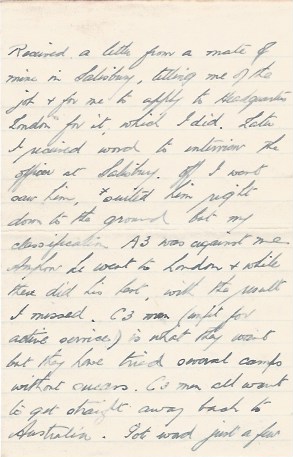 Received a letter from a mate of
mine in Salisbury, telling me of the
job & for me to apply to Headquarters
London for it, which I did. Later
I received word to interview the
officer at Salisbury. Off I went
saw him, & suited him right
down to the ground but my
classification A3 was against me
Anyhow he went to London & while
there did his best, with the result
I missed. C3 men (unfit for
active service) is what they want
but they have tried several camps
without success. C3 men all want
to get straight away back to
Australia. Got word just a few